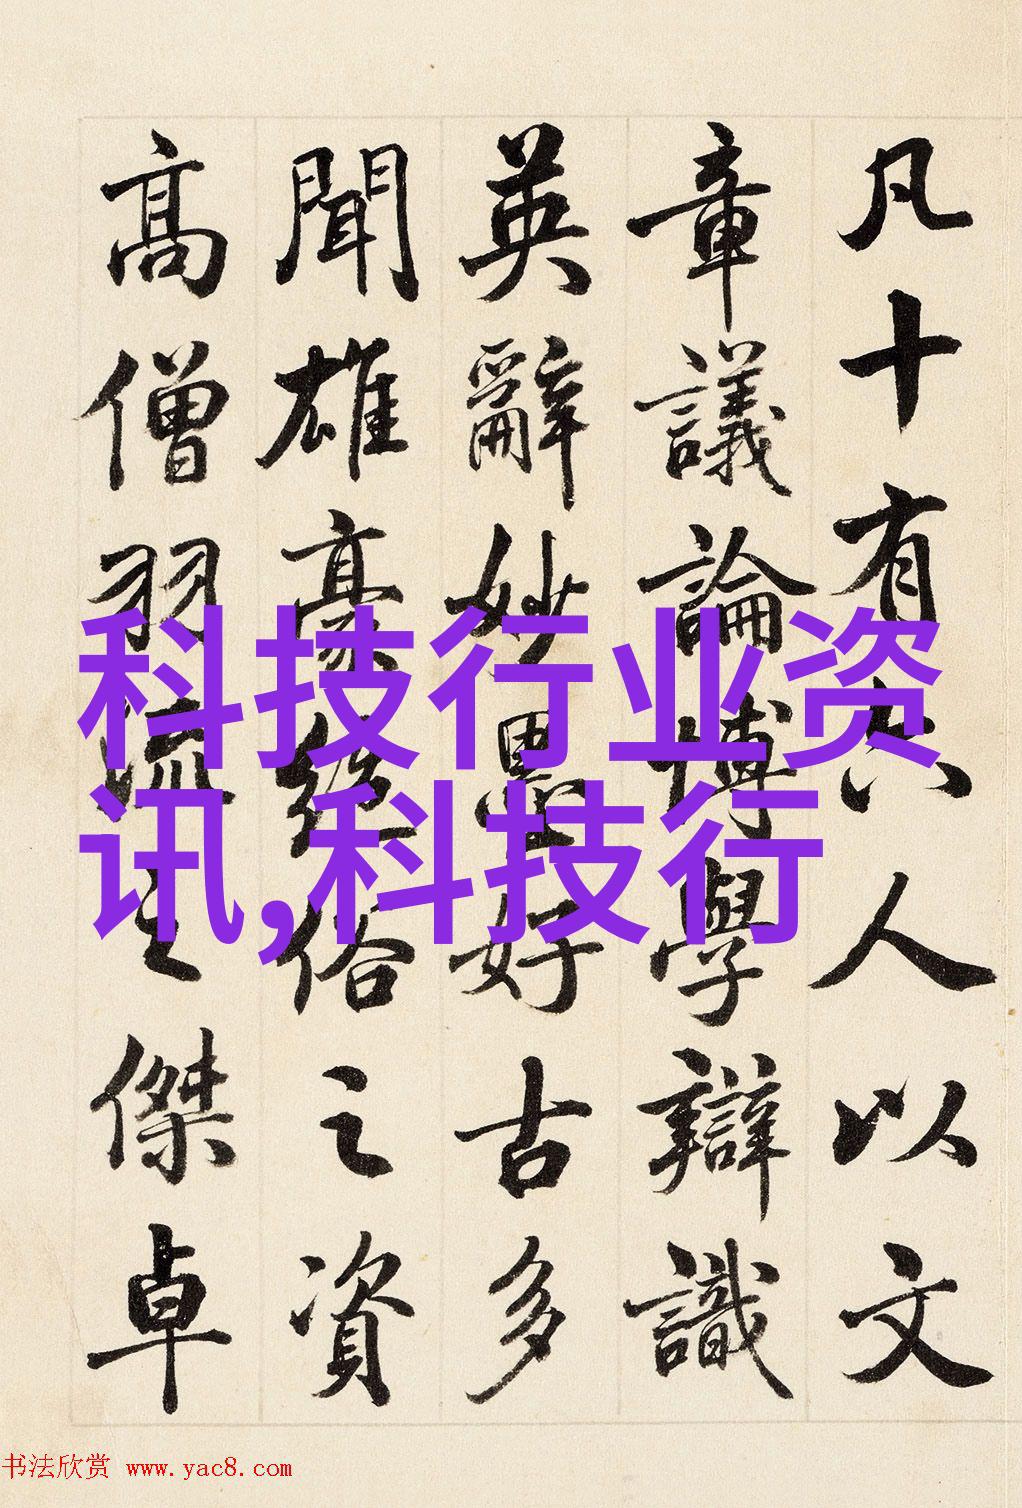 凡十有六人以文
章議論博學辯識
英辭妙墨好古多
聞雄豪絕俗之資
高僧羽流之傑卓
科技行业资
讯,科技行
书法欣赏 www.yac8.com